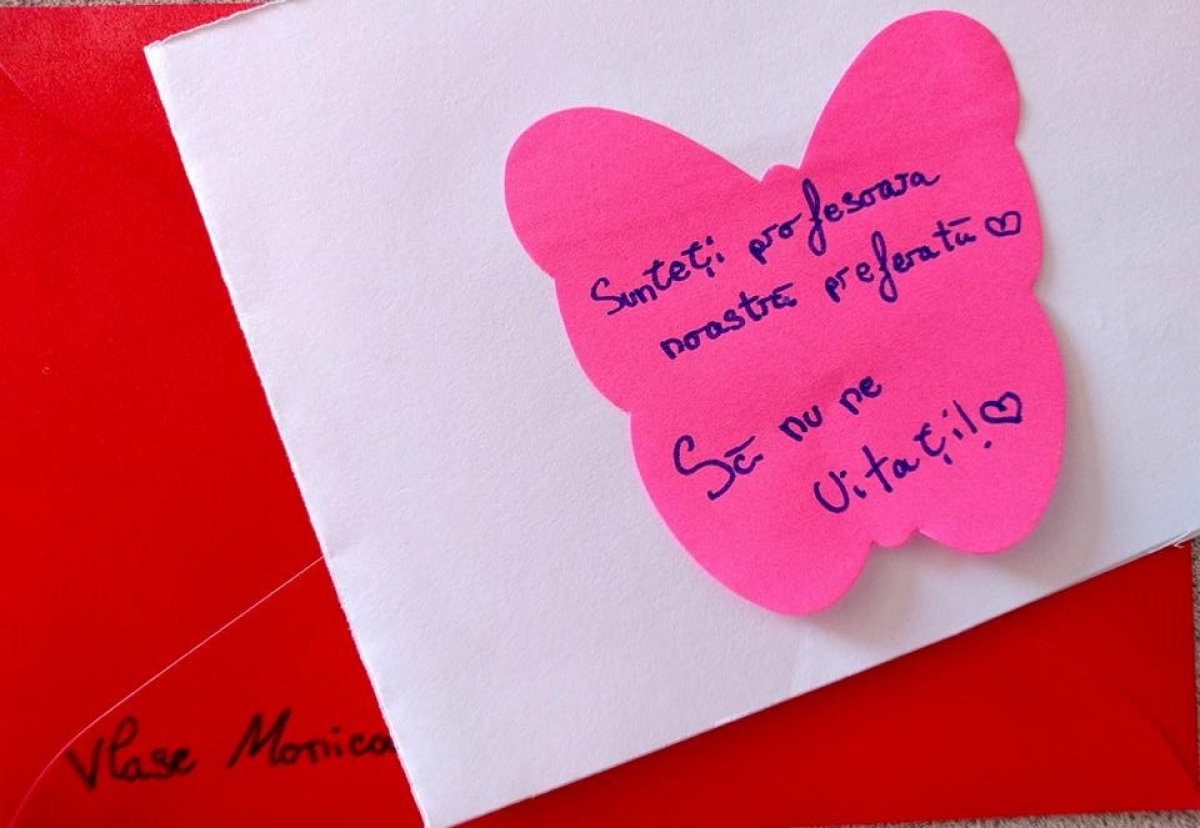 Sunteți profesoara
noastră preferată ♡
Să nu ne
uitați! ♡
Vlase Monica